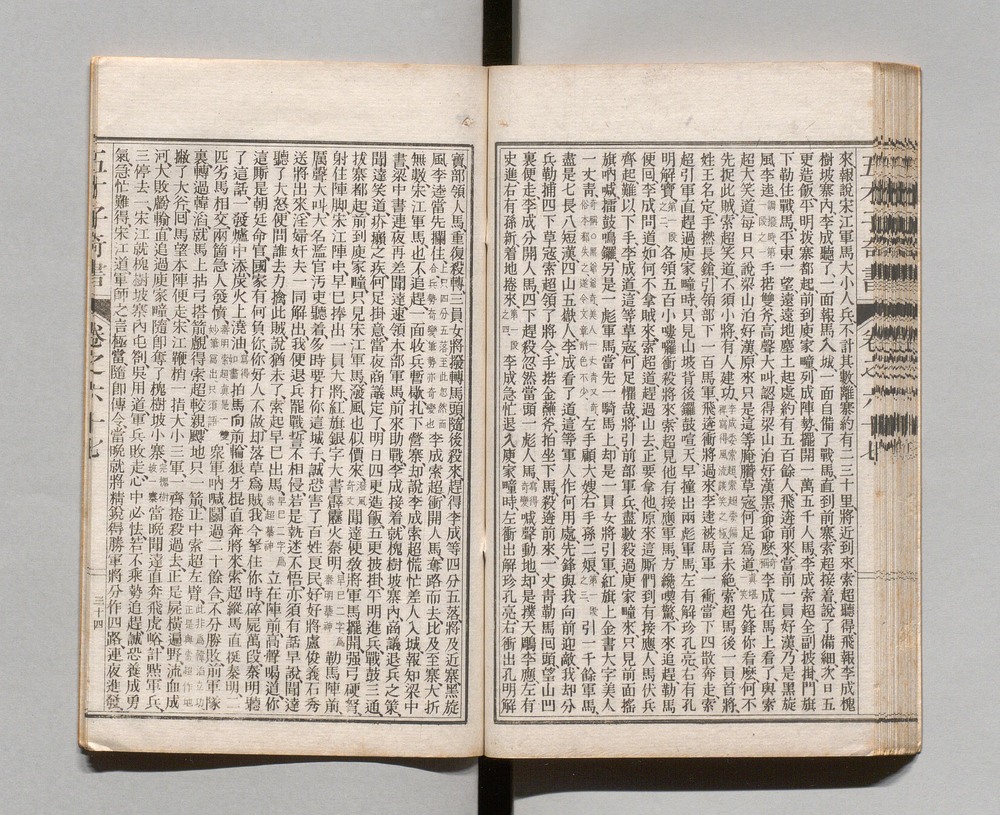 來報說宋江軍馬大小人兵不計其數離寨約有二三十里將近到來索超聽得飛報李成槐
樹坡寨內李成聽了一面報馬入城一面自備了戰馬直到前寨索超接着說了備細次日五
更造飯平明拔寨都起前到庾家疃列成陣勢擺開一萬五千人馬李成索超全副披掛門旗
下勒住戰馬平東一望遠遠地塵土起處約有五百餘人飛遶前來當前一員好漢乃是黑旋
風李逵手搭雙斧高聲大叫認得梁山泊好漢黑爺爺麼李成在馬上看了與索
超大笑道每日只說梁山泊好漢原來只是這等腌臢草寇何足爲道先鋒你看麼何不
先捉此賊索超笑道不須小將有人建功言未絕索超馬後一員首將
姓王名定手撚長鎗引領部下一百馬軍飛遶衝將過來李逵被馬軍一衝當下四散奔走索
超引軍直趕過庾家疃時只見山坡背後鑼鼓喧天早撞出兩彪軍馬左有解珍孔亮右有孔
明解寶各領五百小嘍囉衝殺將來索超見他有接應軍馬方纔喫驚不來追趕勒馬
便回李成問道如何不拿賊來索超道趕過山去正要拿他原來這厮們到有接應人馬伏兵
齊起難以下手李成道這等草寇何足懼哉將引前部軍兵盡數殺過庾家疃來只見前面搖
旗吶喊擂鼓鳴鑼另是一彪軍馬當先一騎馬上却是一員女將引軍紅旗上金書大字美人
一丈靑左手顧大嫂右手孫二娘引一千餘軍馬
盡是七長八短漢四山五嶽人李成看了道這等軍人作何用處先鋒與我向前迎敵我却分
兵勒捕四下草寇索超領了將令手搭金蘸斧拍坐下馬殺遶前來一丈靑勒馬回頭望山凹
裏便走李成分開人馬四下趕殺忽然當頭一彪人馬喊聲動地却是撲天鵰李應左有
史進右有孫新着地捲來李成急忙退入庾家疃時左衝出解珍孔亮右衝出孔明解
寶部領人馬重復殺轉三員女將撥轉馬頭隨後殺來趕得李成等四分五落將及近寨黑旋
風李逵當先攔住李成索超衝開人馬奪路而去比及至寨大折
無數宋江軍馬也不追趕一面收兵暫歇扎下營寨却說李成索超慌忙差人入城報知梁中
書梁中書連夜再差聞達速領本部軍馬前來助戰李成接着就槐樹坡寨內商議退兵之策
聞達笑道疥癩之疾何足掛意當夜商議定了明日四更造飯五更披掛平明進兵戰鼓三通
拔寨都起前到庾家疃只見宋江軍馬潑風也似價來聞達便敎將軍馬擺開強弓硬弩
射住陣脚宋江陣中早已捧出一員大將紅旗銀字大書霹靂火秦明勒馬陣前
厲聲大叫大名濫官汚吏聽着多時要打你這城子誠恐害了百姓良民好好將盧俊義石秀
送將出來淫婦奸夫一同解出我便退兵罷戰誓不相侵若是執迷不悟亦須有話早說聞達
聽了大怒便問誰去力擒此賊說猶未了索超早已出馬立在陣前高聲喝道你
這厮是朝廷命官國家有何負你你好人不做却落草爲賊我今拏住你時碎屍萬段秦明聽
了這話一發爐中添炭火上澆油拍馬向前輪狼牙棍直奔將來索超縱馬直挺秦明二
匹劣馬相交兩箇急人發憤衆軍吶喊鬬過二十餘合不分勝敗前軍隊
裏轉過韓滔就馬上拈弓搭箭覷得索超較親颼地只一箭正中索超左臂
撇了大斧回馬望本陣便走宋江鞭梢一指大小三軍一齊捲殺過去正是屍橫遍野流血成
河大敗虧輸直追過庾家疃隨卽奪了槐樹坡小寨當晚聞達直奔飛虎峪計㸃軍兵
三停去一宋江就槐樹坡寨內屯劄吳用道軍兵敗走心中必怯若不乘勢追趕誠恐養成勇
氣急忙難得宋江道軍師之言極當隨卽傳令當晚就將精銳得勝軍將分作四路連夜進發
卷之六十七
三十四